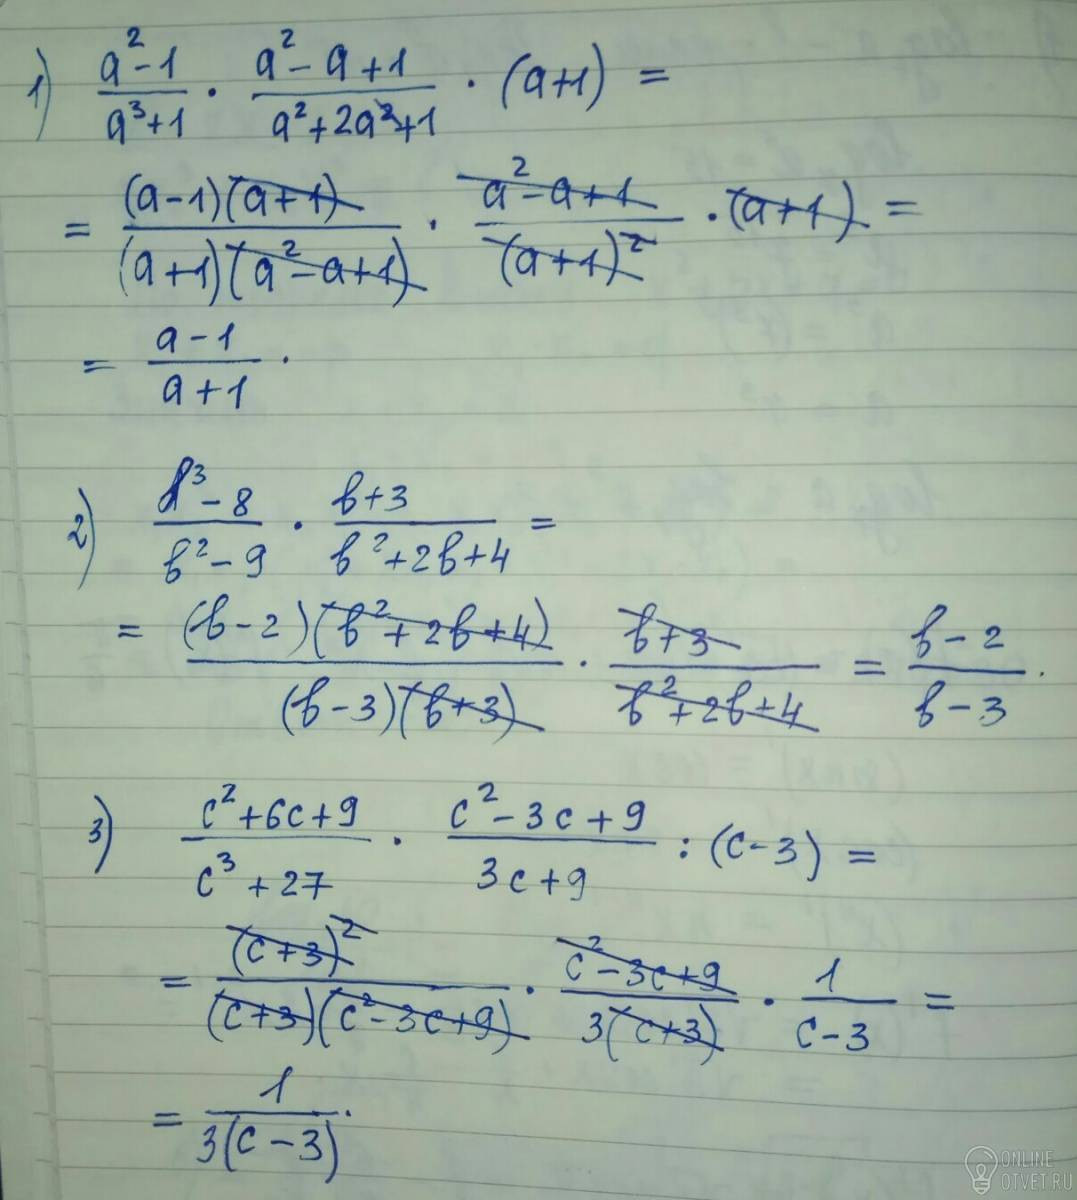 1) (a²-1)/(a³+1) · (a²-a+1)/(a²+2a²+1) · (a+1) =
= ((a-1)(a+1))/((a+1)(a²-a+1)) · (a²-a+1)/((a+1)²) · (a+1) =
= (a-1)/(a+1) ·
2) (b³-8)/(b²-9) · (b+3)/(b²+2b+4) =
= ((b-2)(b²+2b+4))/((b-3)(b+3)) · (b+3)/(b²+2b+4) = (b-2)/(b-3).
3) (c²+6c+9)/(c³+27) · (c²-3c+9)/(3c+9) : (c-3) =
= ((c+3)²)/((c+3)(c²-3c+9)) · (c²-3c+9)/(3(c+3)) · 1/(c-3) =
= 1/(3(c-3)) ·
ONLINE
OTVET.RU